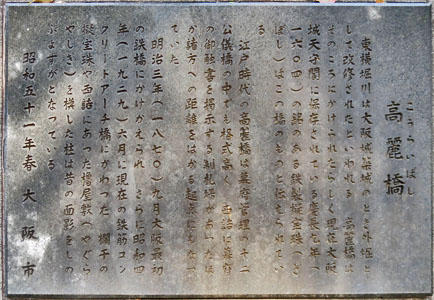 こうらいばし
高麗橋
東横堀川は大阪城築城のとき外堀と
して改修されたといわれる 高麗橋は
そのころにかけられたらしく現在大阪
城天守閣に保存されている慶長九年(
一六〇四)の銘のある鉄製擬宝珠(ぎ
ぼし)はこの橋のものと伝えられてい
る
江戸時代の高麗橋は幕府管理の十二
公儀橋の中でも格式高く 西詰に幕府
の御触書を掲示する制札場があったほ
か諸方への距離をはかる起点にもなっ
ていた
明治三年(一八七〇)九月大阪最初
の鉄橋にかけかえられ さらに昭和四
年(一九二九)六月に現在の鉄筋コン
クリートアーチ橋にかわった 欄干の
擬宝珠や西詰にあった櫓屋敷(やぐら
やしき)を模した柱は昔の面影をしの
ぶよすがとなっている
昭和五十一年春 大阪市